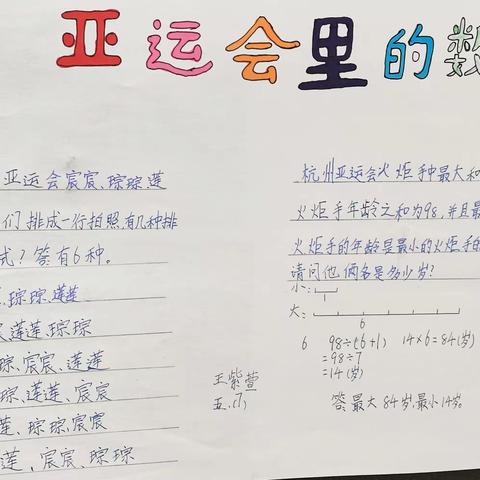 亚运会里的数
亚运会宸宸、琮琮、莲
们排成一行拍照,有几种排
式?答:有6种。
、琮琮、莲莲
莲莲、琮琮
琮、宸宸、莲莲
琮、莲莲、宸宸
莲、琮琮、宸宸
莲、宸宸、琮琮
王紫萱
五.(7)
杭州亚运会火炬手种最大和
火炬手年龄之和为98,并且最
火炬手的年龄是最小的火炬手的
请问他俩各是多少岁?
小:
大:
6
6 98÷(6+1) 14×6=84(岁)
=98÷7
=14(岁)
答:最大84岁,最小14岁。